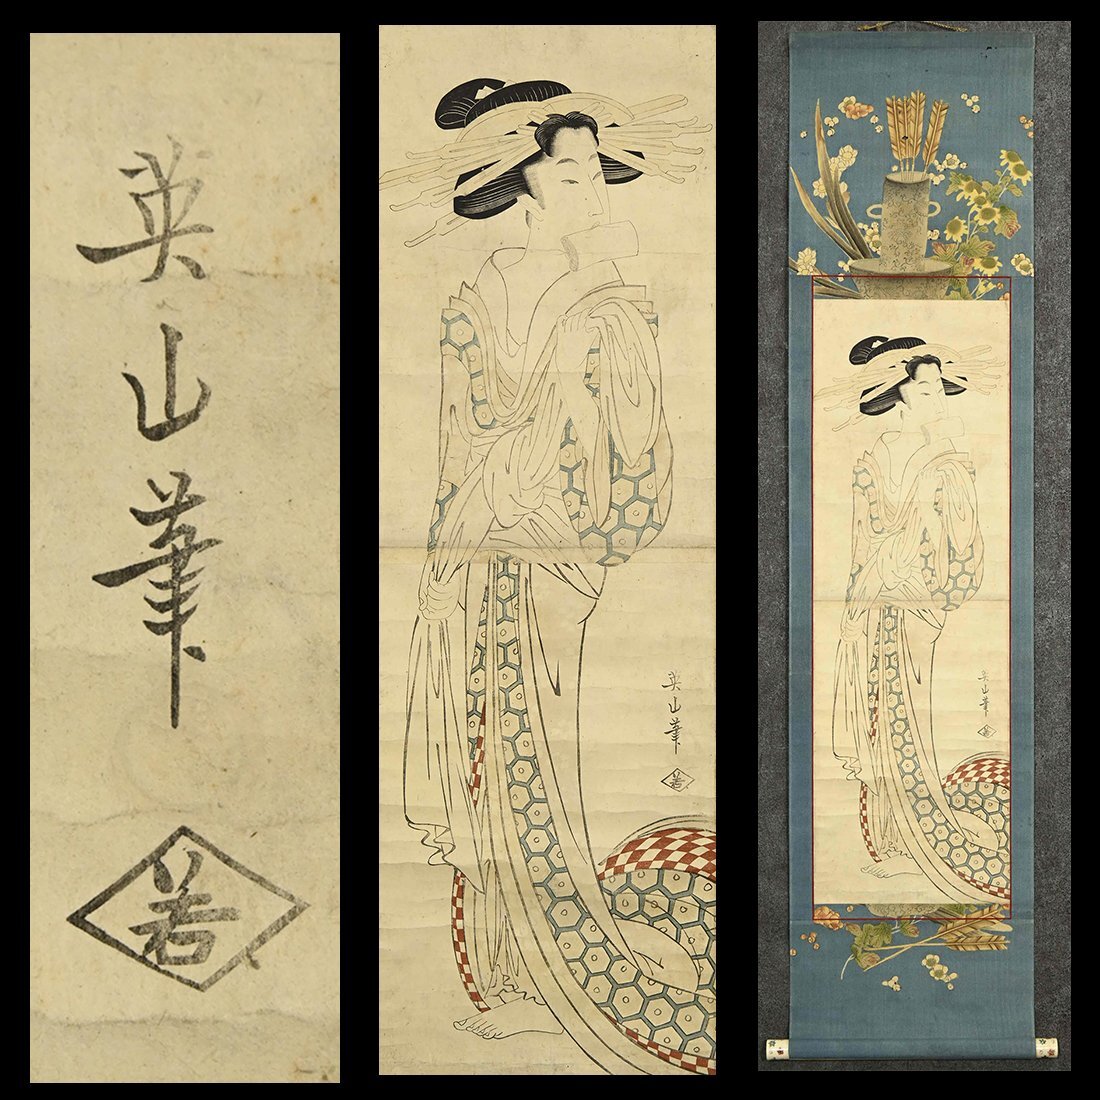 英山筆
若
英山筆
若
英山筆
若